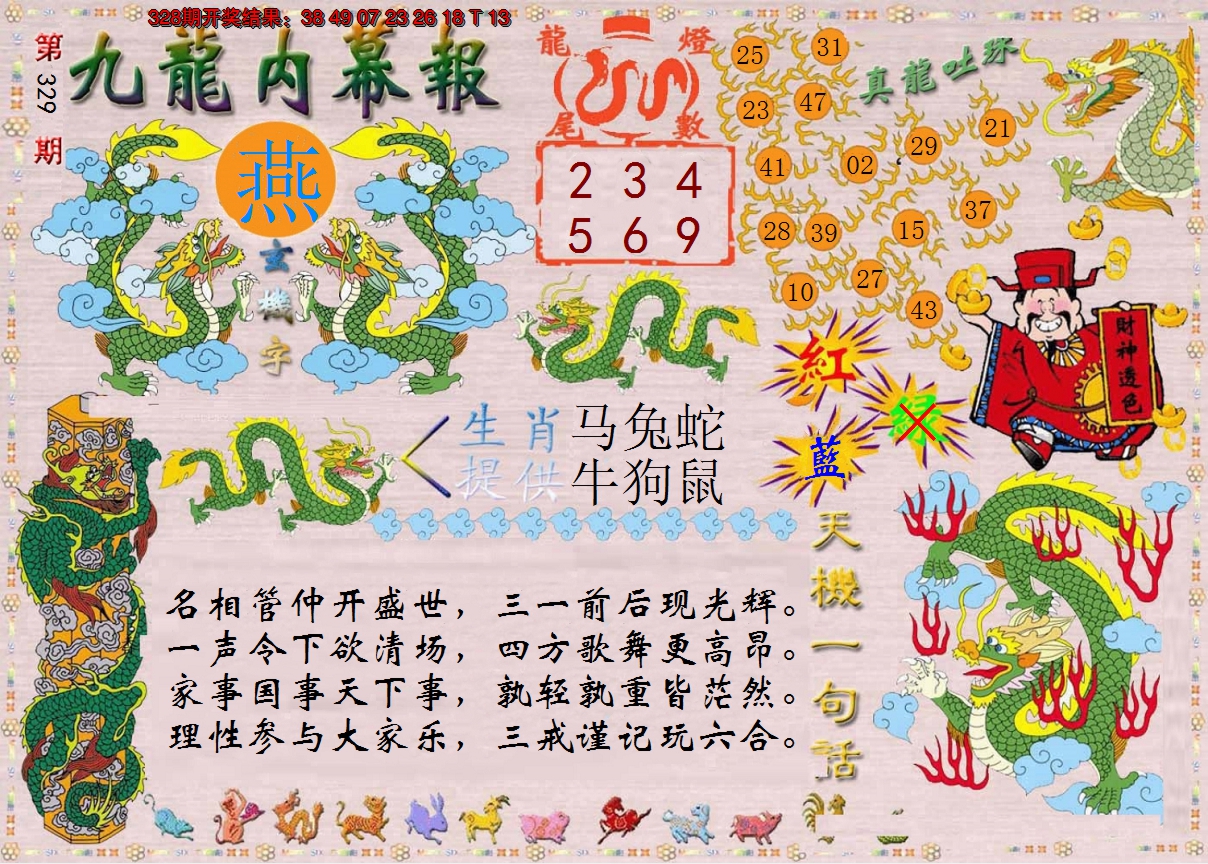 328期开奖结果：38 49 07 23 26 18 T 13
第329期
九龍内幕報
燕
玄機字
龍燈
尾數
2 3 4
5 6 9
真龍吐珠
25 31
23 47
41 02 29 21
28 39 15 37
10 27 43
財神透色
紅
绿
藍
生肖 马兔蛇
提供 牛狗鼠
名相管仲开盛世，三一前后现光辉。
一声令下欲清场，四方歌舞更高昂。
家事国事天下事，孰轻孰重皆茫然。
理性参与大家乐，三戒谨记玩六合。
天機一句話